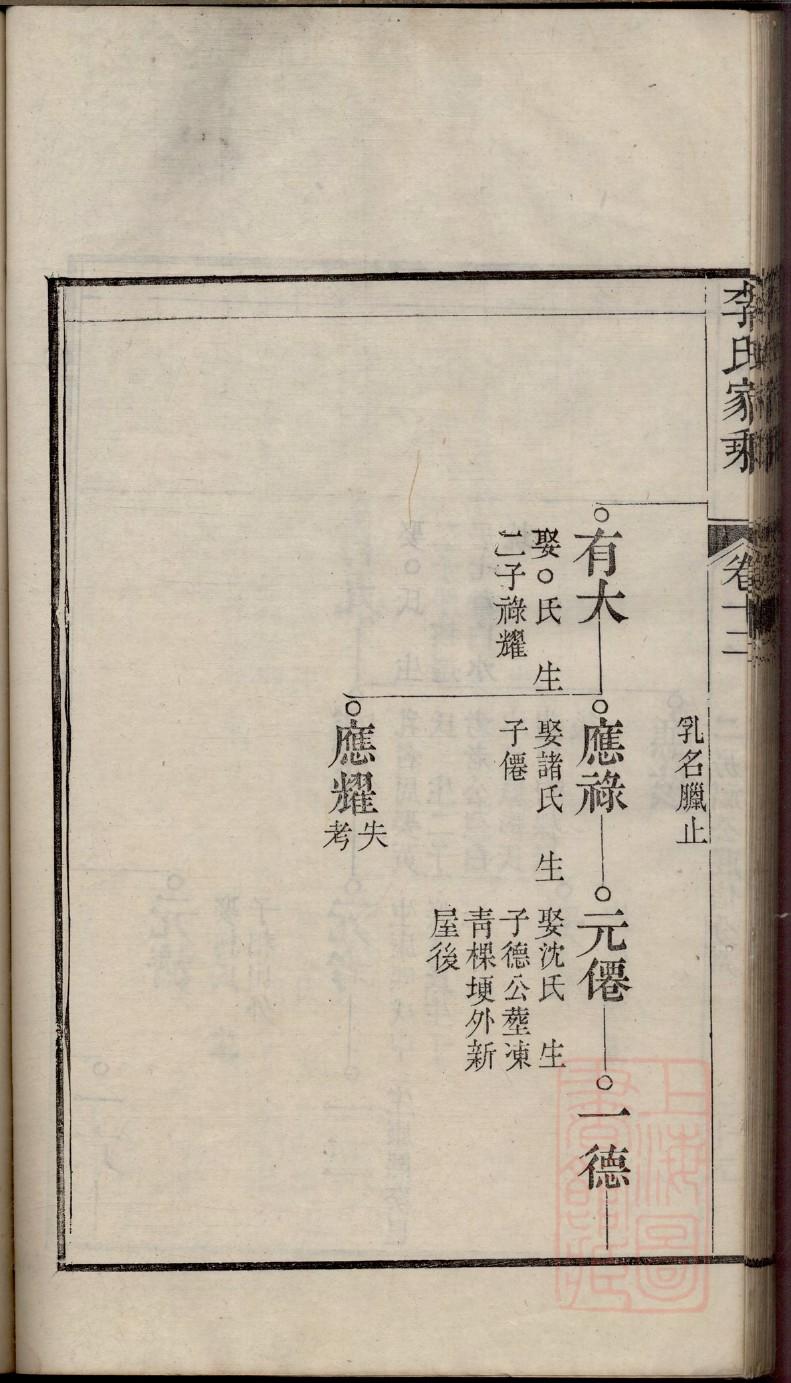 李氏家乘
卷十二
乳名臘止
有大
娶○氏 生
二子祿耀
應祿
娶諸氏 生
子僊
元僊
娶沈氏 生
子德公塟凍
青棵埂外新
屋後
一德
應耀
失
考
上海圖
書館藏